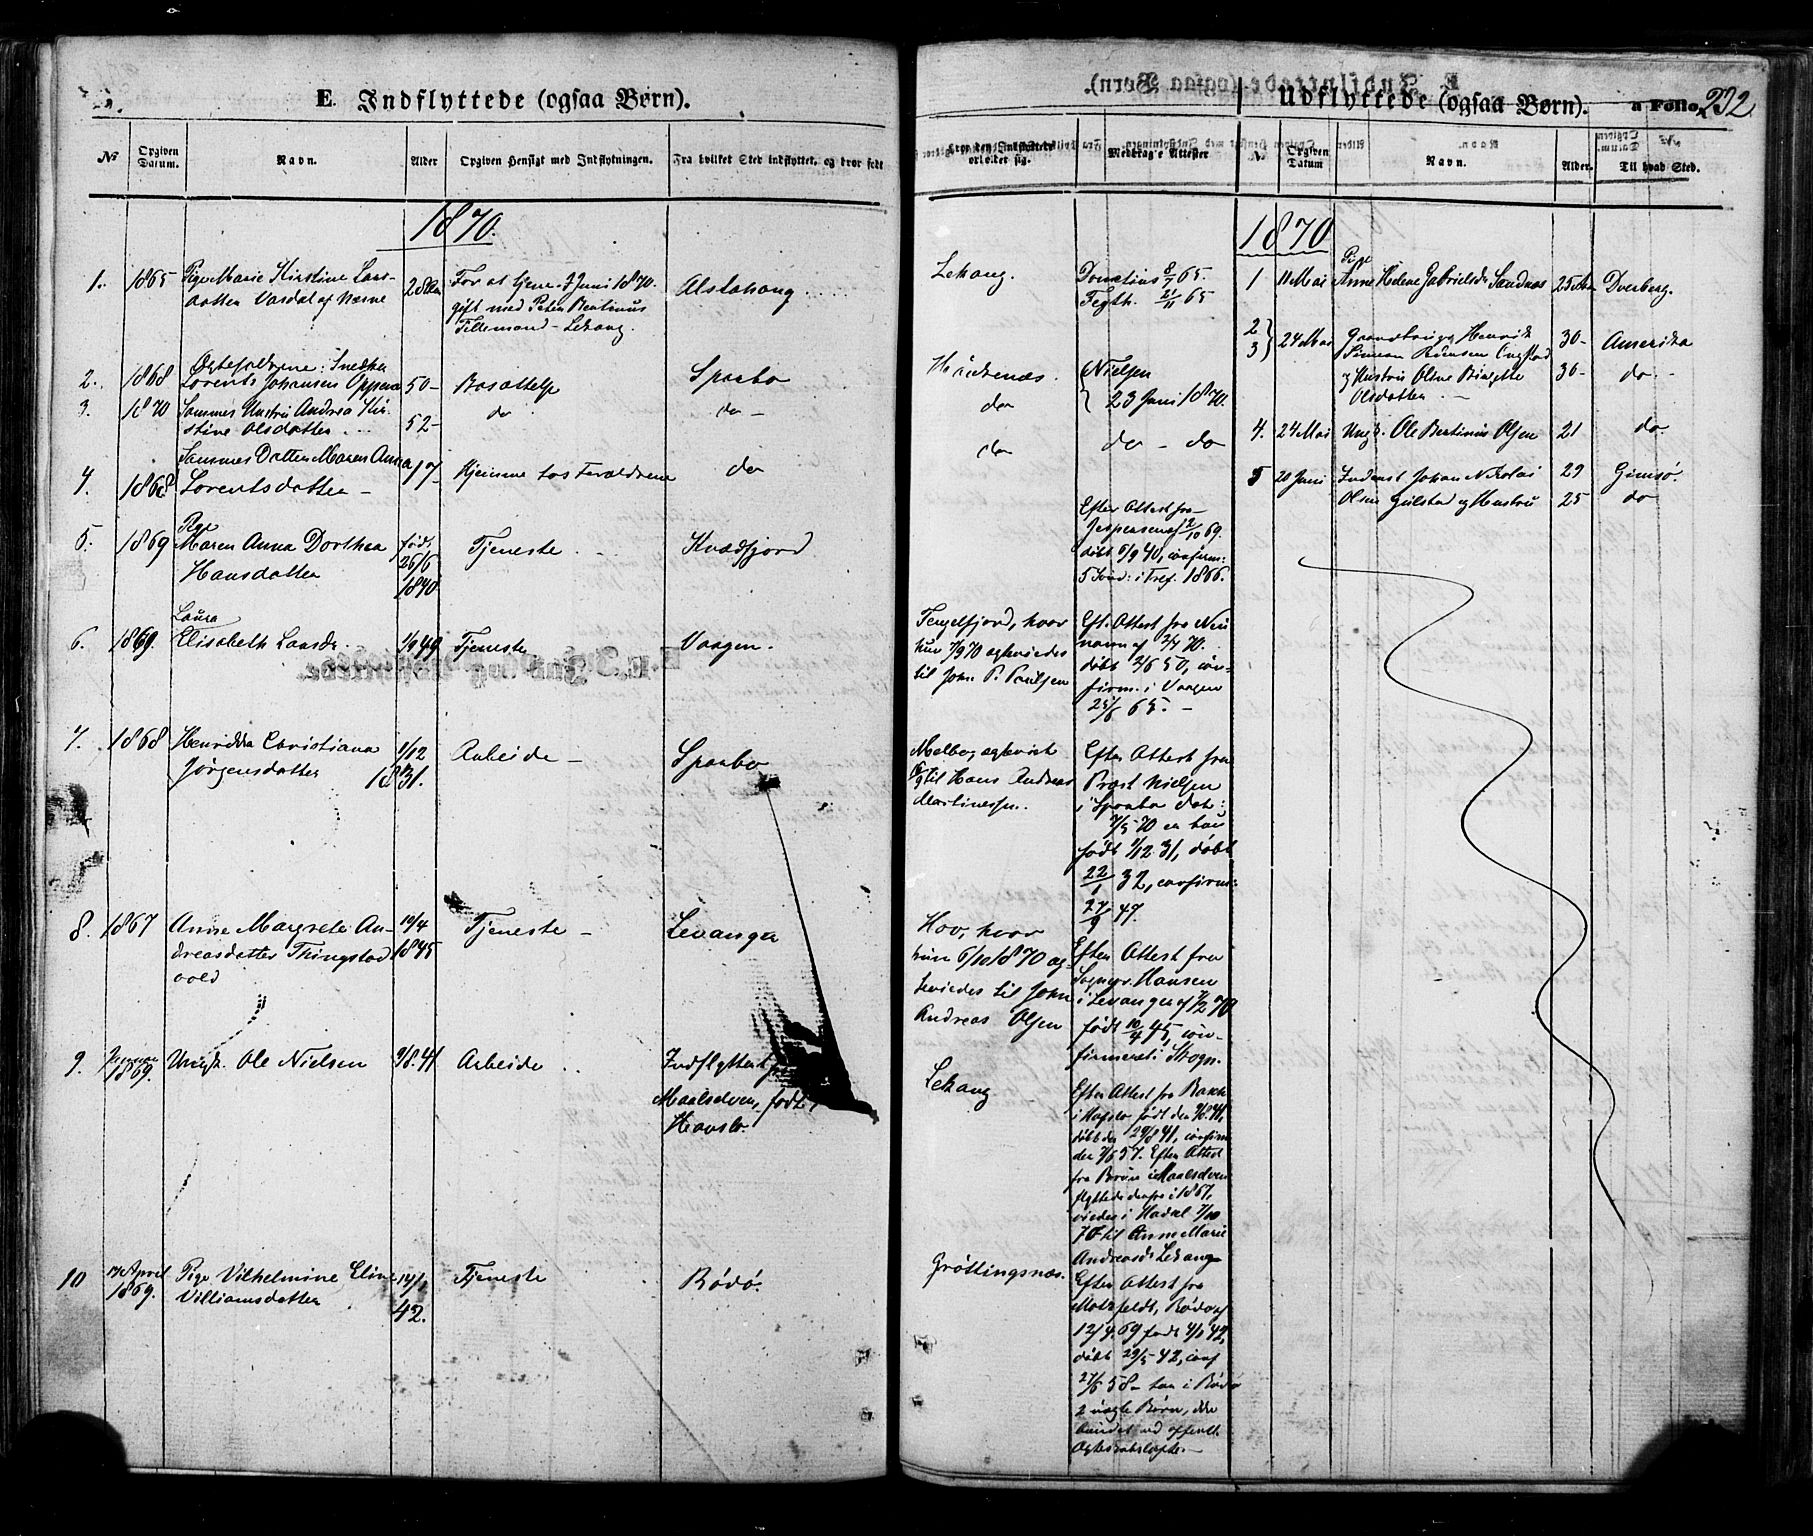 E. Indflyttede (ogsaa Børn).
Udflyttede (ogsaa Børn).
a Folio 232
№
Opgiven Datum.
Navn.
Alder
Opgiven Hensigt med Indflytningen.
Fra hvilket Sted indflyttet, og hvor født
hvor den Indflyttede opholder sig.
Medbragte Attester
№
Opgiven Datum
Navn.
Alder.
Til hvad Sted.
1870.
1. 1865 Pige Marie Kirstine Lars-
datter Vasdal af Næsne
28 Aar
For at tjene. 7 Juni 1870.
gift med Peter Bentinus
Tellemand - Lekang.
Alstahoug
Lekang.
Donatius 8/7 65.
Fegth. 21/11 65
2. 1868 Ægtefolkene: Snedker
Lorents Johansen Oppem
50 -
Bosættelse
Sparbo
Haukenæs.
Nielsen
23 Juni 1870.
3. 1870 Sammes Hustru Andrea Kir-
stine Olsdatter
52 -
do
do -
do
4. 1868 Sammes Datter Maren Anna
Lorentsdatter -
17 -
Hjemme hos Forældrene
do
do
do - do
5. 1869 Pige
Maren Anna Dorthea
Hansdatter
født
26/6
1840
Tjeneste
Kvædfjord
Efter Attest fra
Jespersen af 12/10 69.
døbt 6/9 40, confirm:
5 Sønd: i Tref. 1866.
6. 1869. Laura
Elisabeth Larsdr.
49
Tjeneste
Vaagen.
Tengelfjord, hvor
hun 7/9 70 egteviedes
til John P. Paulsen
Eft. Attest fra Neu
mann af 2/4 70.
døbt 2/6 50, con-
firm. i Vaagen
25/6 65. -
7. 1868 Henrikka Christiana
Jørgensdatter
1/12
1831.
Arbeide -
Sparbo
Melbo, egteviet
til Hans Andreas
Martinessen.
Efter Attest fra
Provst Nielsen
i Sparbo dat:
7/5 70 er hun
født 1/12 31, døbt
22/1 32, confirm:
27/9 47.
8. 1867 Anne Margrete An-
dreasdatter Thingstad
vold
10/4
1845
Tjeneste -
Levanger
Hov, hvor
hun 6/10 1870 eg-
teviedes til John
Andreas Olsen
Efter Attest fra
Sognepr. Hansen
i Levanger af 7/2 70
født 10/4 45, con-
firmeret i Skogn.
9. Januar
1869.
Ungk. Ole Nielsen
9/8. 41
Arbeide
Indflyttet fra
Maalselven, født i
Havslo.
Lekang
Efter Attest fra Bakke
i Hafslo født den 9/8. 41,
døbt den 29/8 41, confirm
den 7/6 57. Efter Attest
fra Bruun i Maalselven
flyttede derfra i 1867,
viedes i Hadsel 7/10
70 til Anne Marie
Andreasdr. Lekang
10 April
1869.
Pige Vilhelmine Eline
Villiamsdatter
42.
Tjeneste
Rødø.
Grøttingsnæs.
Efter Attest fra
Motzfeldt, Rødø af
12/4. 69 født 4/1 42,
døbt 29/5 42, conf
27/6 58 - har i Rødø
2 uægte Børn, ikke
bundet ved offentl.
Ægteskabsløfte. -
1870
1 11 Mai Pige
Anne Helene Gabrielsdr. Sandnes 25 Aar Dverberg.
2
3
24 Mai Gaardbruger Henrik
Simeon Bünsen Ongstad
30 - Amerika
og Hustru Oline Birgitte
Olsdatter. -
30 - do -
4. 24 Mai Ungk. Ole Bertinius Olsen 21 do
5 20 Juni Inderst Johan Nikolai 29 Gimsø.
Olsen Gulstad og Hustru 25 do